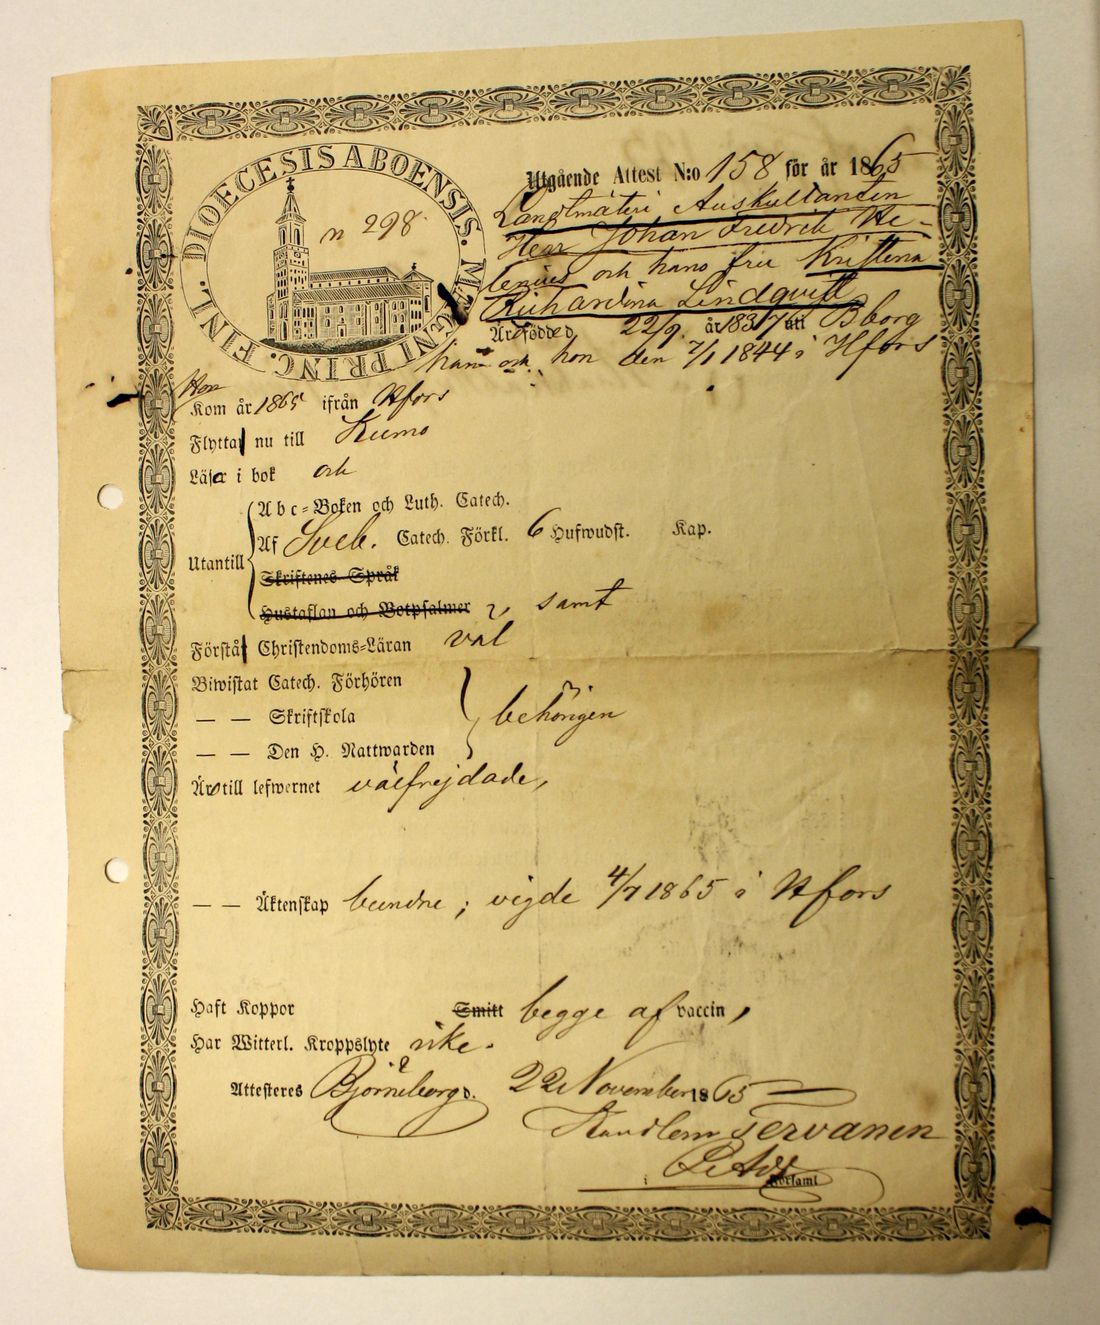 DIOECESIS ABOENSIS. MAGNI PRINC. FINL.
n 298.
Utgående Attest N:o 158 för år 1865
Landtmäteri Auskultanten
Herr Johan Fredrik He-
lenius och hans fru Kristina
Richardina Lindqvist
Äro födde d. 22/9 år 1837 uti Bborg
han och hon den 7/1 1844 i Hfors
Hon
Kom år 1865 ifrån Hfors
Flytta nu till Kumo
Läsa i bok och
Utantill
Abc-Boken och Luth. Catech.
Af Sveb. Catech. Förkl. 6 Hufwudst. Kap.
Skriftenes Språk
Hustaflan och Botpsalmer samt
Förstå Christendoms-Läran väl
Biwistat Catech. Förhören
— — Skriftskola behörigen
— — Den H. Nattwarden
Äro till lefwernet välfrejdade,
— — Äktenskap bundne; vigde 4/7 1865 i Hfors
Haft Koppor Smitt begge af vaccin,
Har Witterl. Kroppslyte icke.
Attesteres Björneborg d. 22 November 1865
Tervanen
i Församl